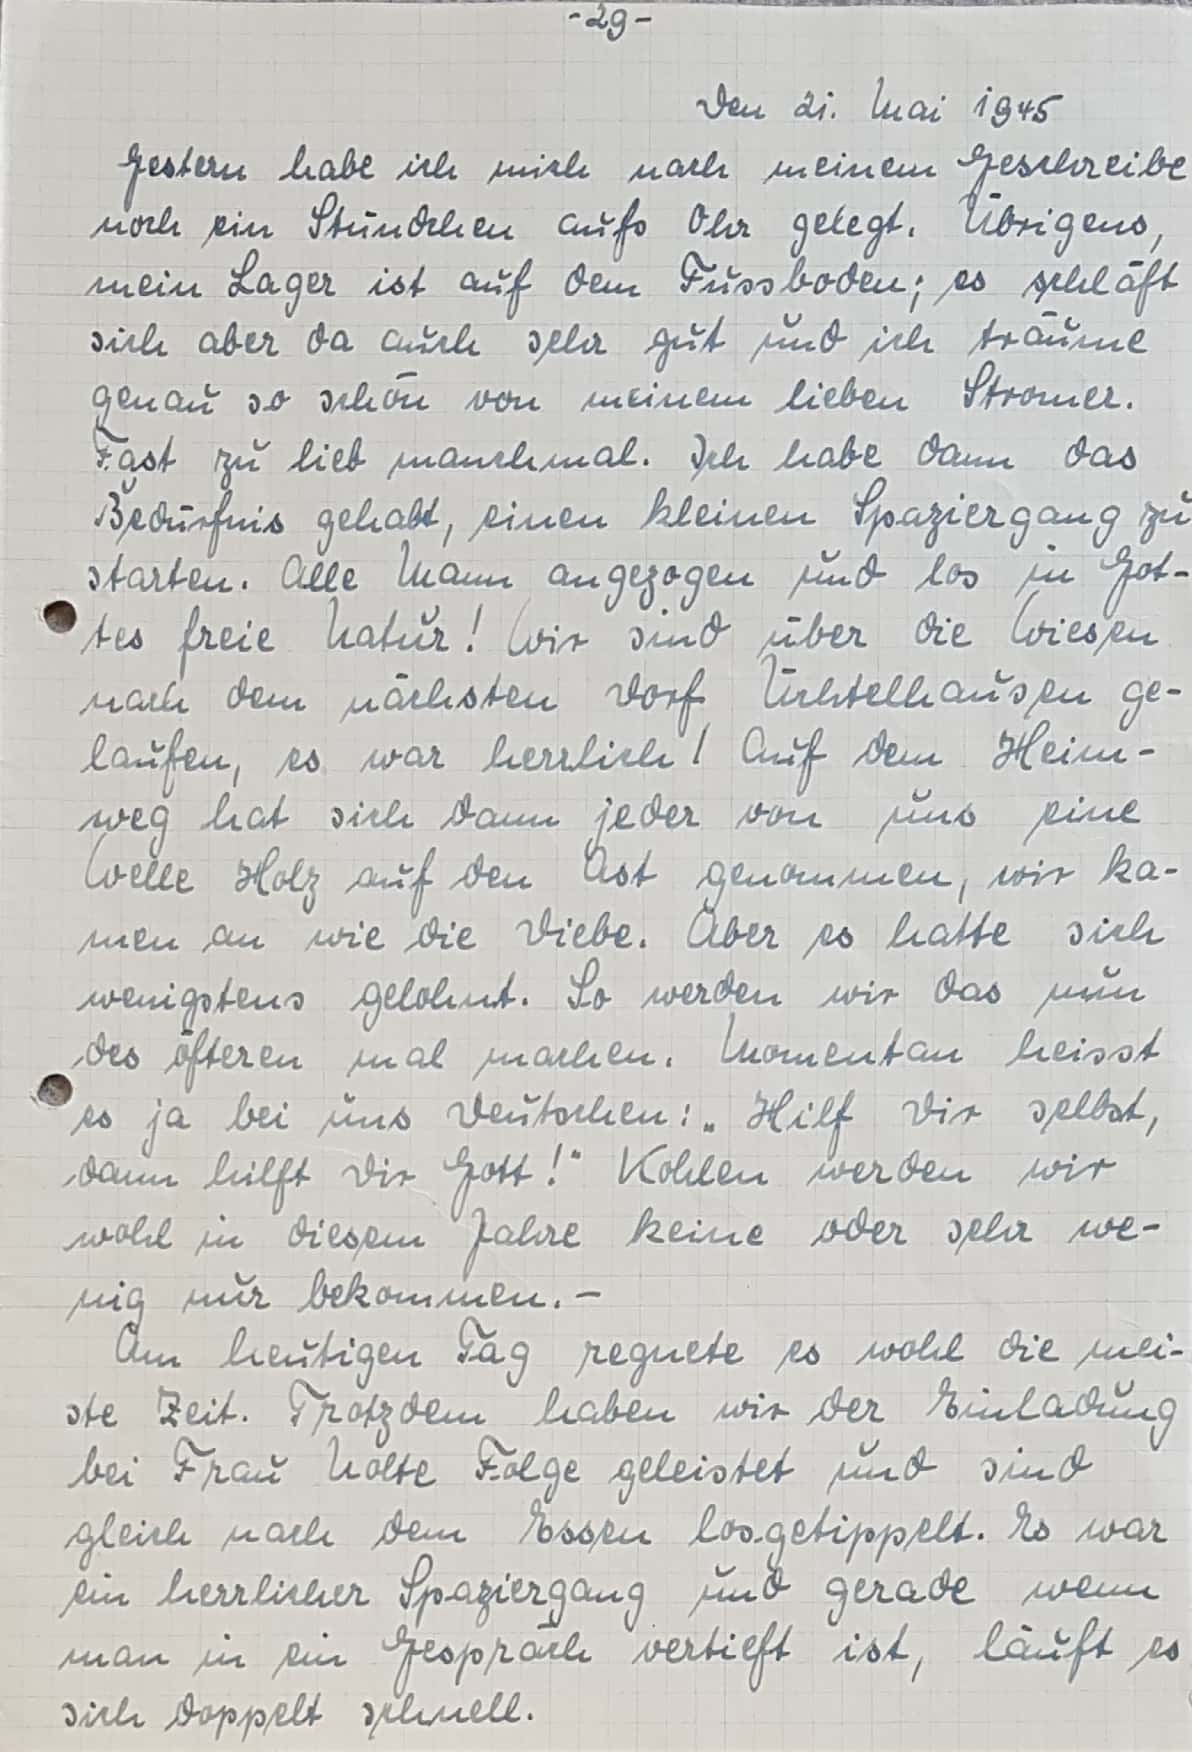 -29-
Den 21. Mai 1945
Gestern habe ich mich nach meinem Geschreibe
noch ein Stündchen aufs Ohr gelegt. Übrigens,
mein Lager ist auf dem Fussboden; es schläft
sich aber da auch sehr gut und ich träume
genau so schön von meinem lieben Stromer.
Fast zu lieb manchmal. Ich habe dann das
Bedürfnis gehabt, einen kleinen Spaziergang zu
starten. Alle Mann angezogen und los in Got-
tes freie Natur! Wir sind über die Wiesen
nach dem nächsten Dorf Üchtelhausen ge-
laufen, es war herrlich! Auf dem Heim-
weg hat sich dann jeder von uns eine
Welle Holz auf den Ast genommen, wir ka-
men an wie die Diebe. Aber es hatte sich
wenigstens gelohnt. So werden wir das nun
des öfteren mal machen. Momentan heisst
es ja bei uns Deutschen: „Hilf Dir selbst,
dann hilft Dir Gott!" Kohlen werden wir
wohl in diesem Jahre keine oder sehr we-
nig nur bekommen.-
Am heutigen Tag regnete es wohl die mei-
ste Zeit. Trotzdem haben wir der Einladung
bei Frau Nolte Folge geleistet und sind
gleich nach dem Essen losgetippelt. Es war
ein herrlicher Spaziergang und gerade wenn
man in ein Gespräch vertieft ist, läuft es
sich doppelt schnell.